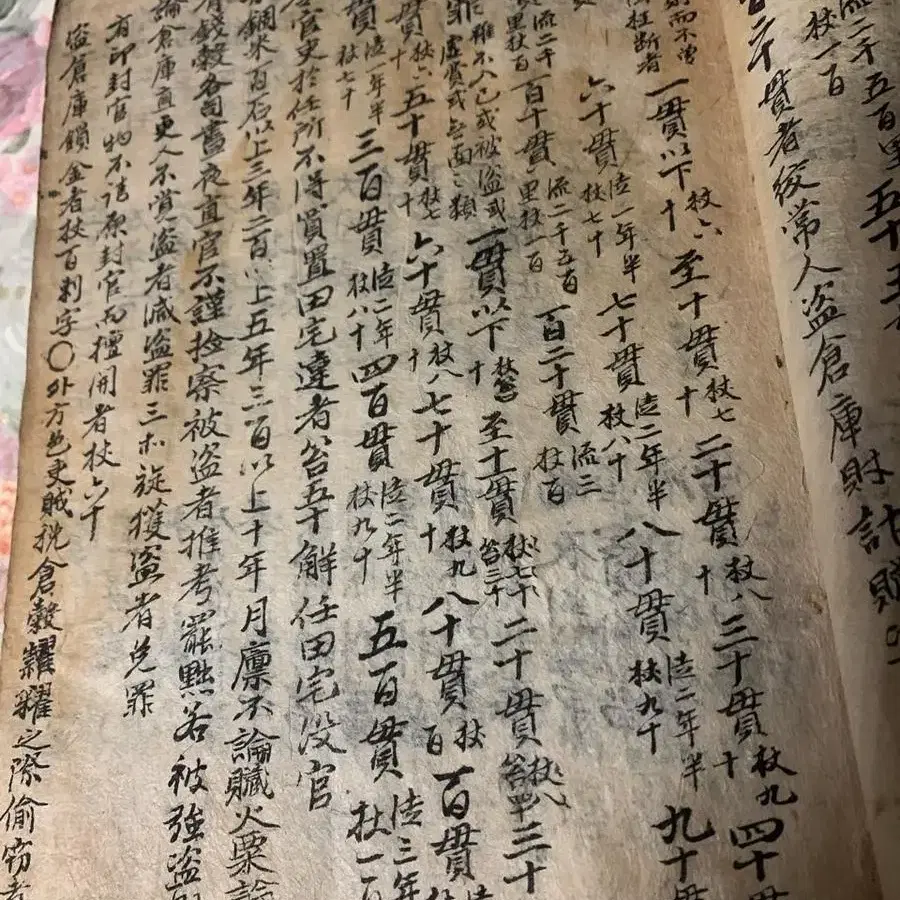 流二千五百里五十五
杖一百
百二十貫者絞常人盜倉庫財計贓
則而不曾
枉斷者
一貫以下杖六十至十貫杖七十二十貫杖八十三十貫杖九十四十貫
六十貫徒一年半杖七十七十貫徒二年半杖八十八十貫徒二年半杖九十九十貫
流二千里杖百百十貫流二千五百里杖一百百二十貫流三杖百
罪雖不入己或被盜或虛賞或無面之類一貫以下至十貫杖七十笞三十二十貫三十
貫杖六十五十貫杖七十六十貫杖八十七十貫杖九十八十貫杖百百貫
貫徒一年半杖七十三百貫徒二年杖八十四百貫徒二年半杖九十五百貫徒三年杖一百
官吏於任所不得買置田宅違者笞五十解任田宅沒官
銅米百石以上三年二百以上五年三百以上十年月廩不論贓火粟論
有錢穀各司晝夜直官不謹捡察被盜者推考罷黜若被強盜
論倉庫直更人不覺盜者減盜罪三等旋獲盜者免罪
有印封官物不請原封官而擅開者杖六十
盜倉庫鎖金者杖百刺字〇外方邑吏賊挩倉穀糶糴之際偷窃者